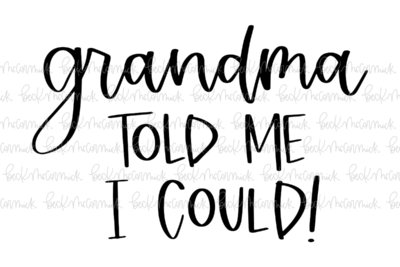 grandma
TOLD ME
I COULD!